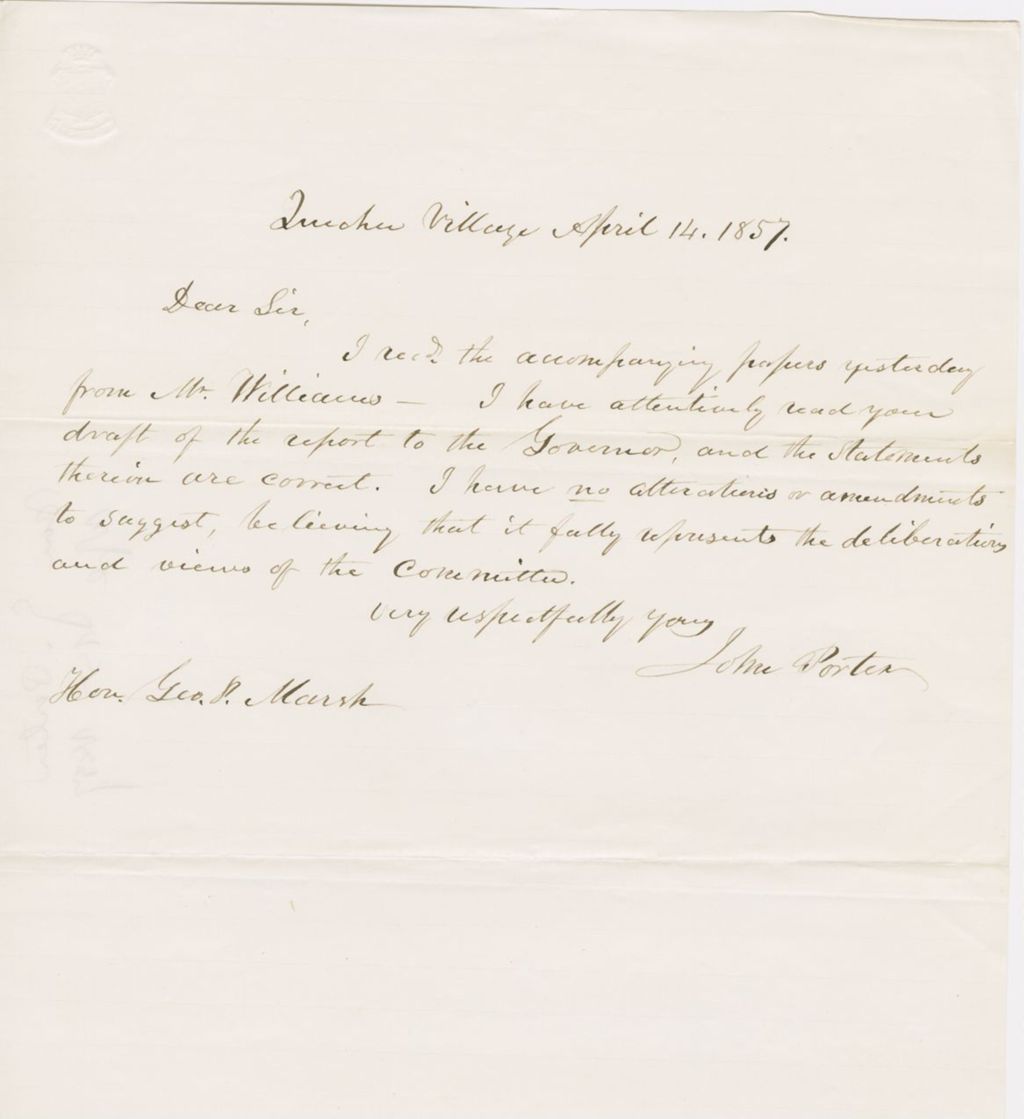 Quechee Village April 14. 1857.
Dear Sir,
I recd. the accompanying papers yesterday
from Mr. Williams — I have attentively read your
draft of the report to the Governor, and the statements
therein are correct. I have no alterations or amendments
to suggest, believing that it fully represents the deliberations
and views of the Committee.
Very respectfully yours
John Porter
Hon. Geo. P. Marsh